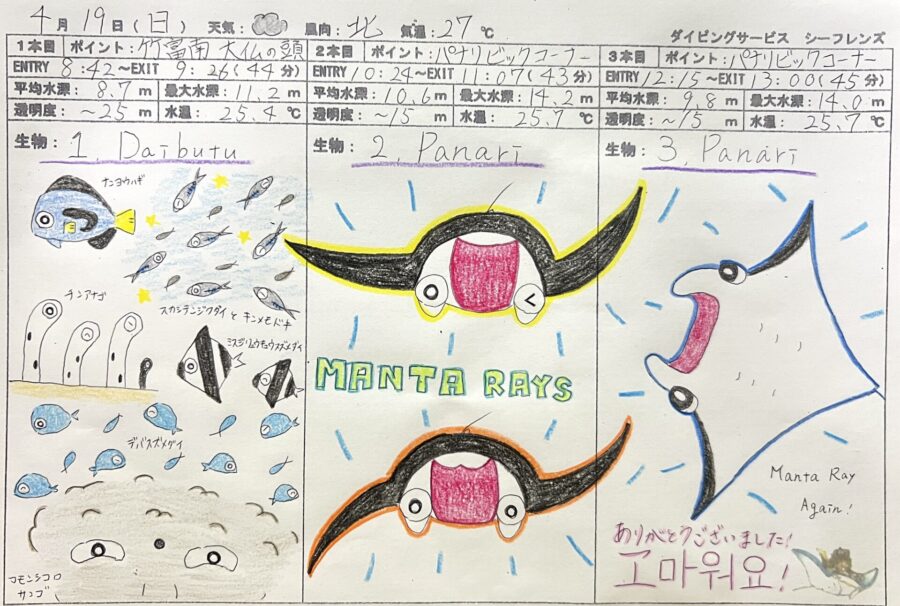 4月19日(日) 天気: 風向: 北 気温: 27℃
ダイビングサービス シーフレンズ
1本目 ポイント: 竹富南 大仏の頭
ENTRY 8:42～EXIT 9:26(44分)
平均水深: 8.7m 最大水深: 11.2m
透明度: ~25m 水温: 25.4℃
生物: 1, Daibutu
ナンヨウハギ
スカシテンジクダイ と キンメモドキ
チンアナゴ
ミスジリュウキュウスズメダイ
デバスズメダイ
コモンシコロ
サンゴ
2本目 ポイント: パナリビックコーナー
ENTRY 10:24～EXIT 11:07(43分)
平均水深: 10.6m 最大水深: 14.2m
透明度: ~15m 水温: 25.7℃
生物: 2, Panari
MANTA RAYS
3本目 ポイント: パナリビックコーナー
ENTRY 12:15～EXIT 13:00(45分)
平均水深: 9.8m 最大水深: 14.0m
透明度: ~15m 水温: 25.7℃
生物: 3, Panari
Manta Ray
Again!
ありがとうございました!
고마워요!